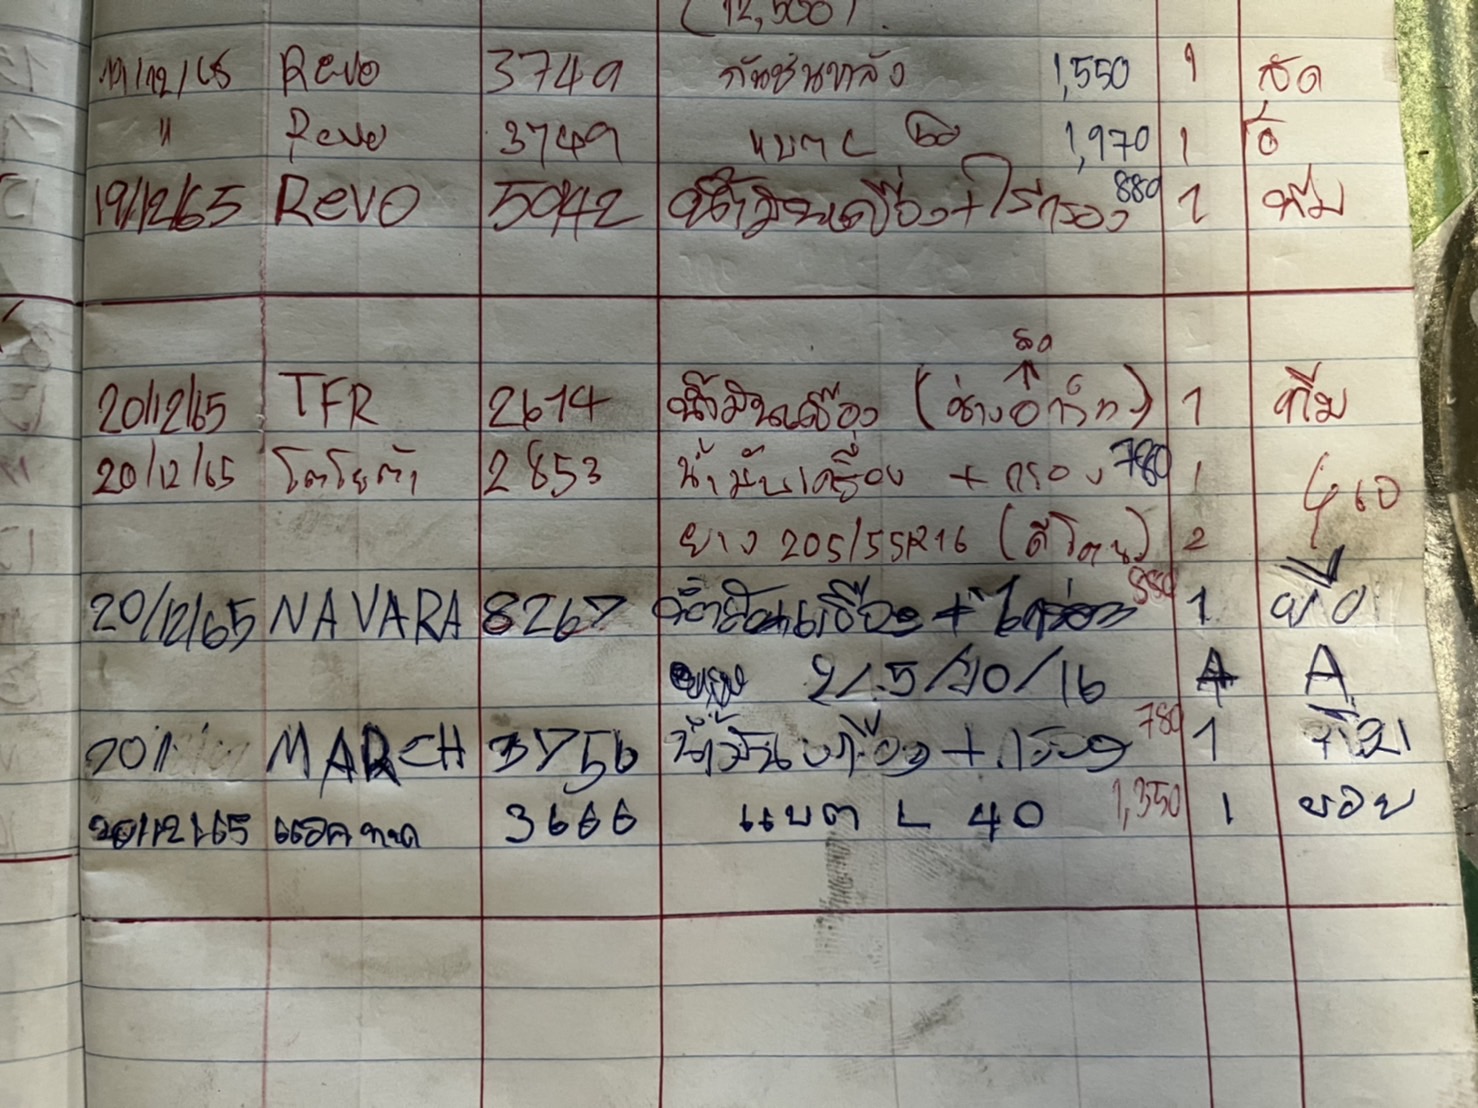 (12,500)
19/12/65 Revo 3749 กันชนหลัง 1,550 1
" Revo 3749 แบต L 1,970 1
19/12/65 Revo 5042 น้ำมันเครื่อง+ไส้กรอง 880 1 ทีม
20/12/65 TFR 2614 น้ำมันเครื่อง (ช่างอาร์ท) 1 ทีม
20/12/65 โตโยต้า 2853 น้ำมันเครื่อง + กรอง 780 1
ยาง 205/55R16 (ตีโตน) 2
20/12/65 NAVARA 8267 น้ำมันเครื่อง + ไส้กรอง 880 1
ยาง 215/70/16 4 A
20/ MARCH 3756 น้ำมันเครื่อง + กรอง 780 1
20/12/65 3666 แบต L 40 1,350 1